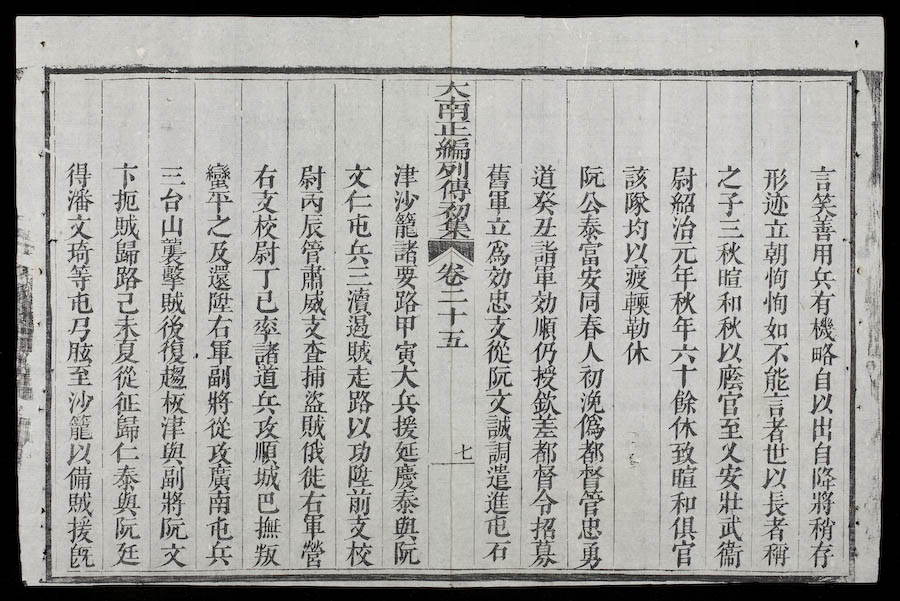 言笑善用兵有機略自以出自降將稍存
形迹立朝恂恂如不能言者世以長者稱
之子三秋暄和秋以廕官至乂安壯武衞
尉紹治元年秋年六十餘休致暄和俱官
該隊均以疲輭勒休
阮公泰富安同春人初浼僞都督管忠勇
道癸丑詣軍効順仍授欽差都督令招募
舊軍立爲効忠支從阮文誠調遣進屯石
大南正編列傳初集 卷二十五 七
津沙籠諸要路甲寅大兵援延慶泰與阮
文仁屯兵三瀆遏賊走路以功陞前支校
尉丙辰管肅威支查捕盜賊俄徙右軍營
右支校尉丁巳率諸道兵攻順城巴撫叛
蠻平之及還陞右軍副將從攻廣南屯兵
三台山襲擊賊後復趨板津與副將阮文
卞扼賊歸路己未夏從征歸仁泰與阮廷
得潘文琦等屯弓肱至沙籠以備賊援旣